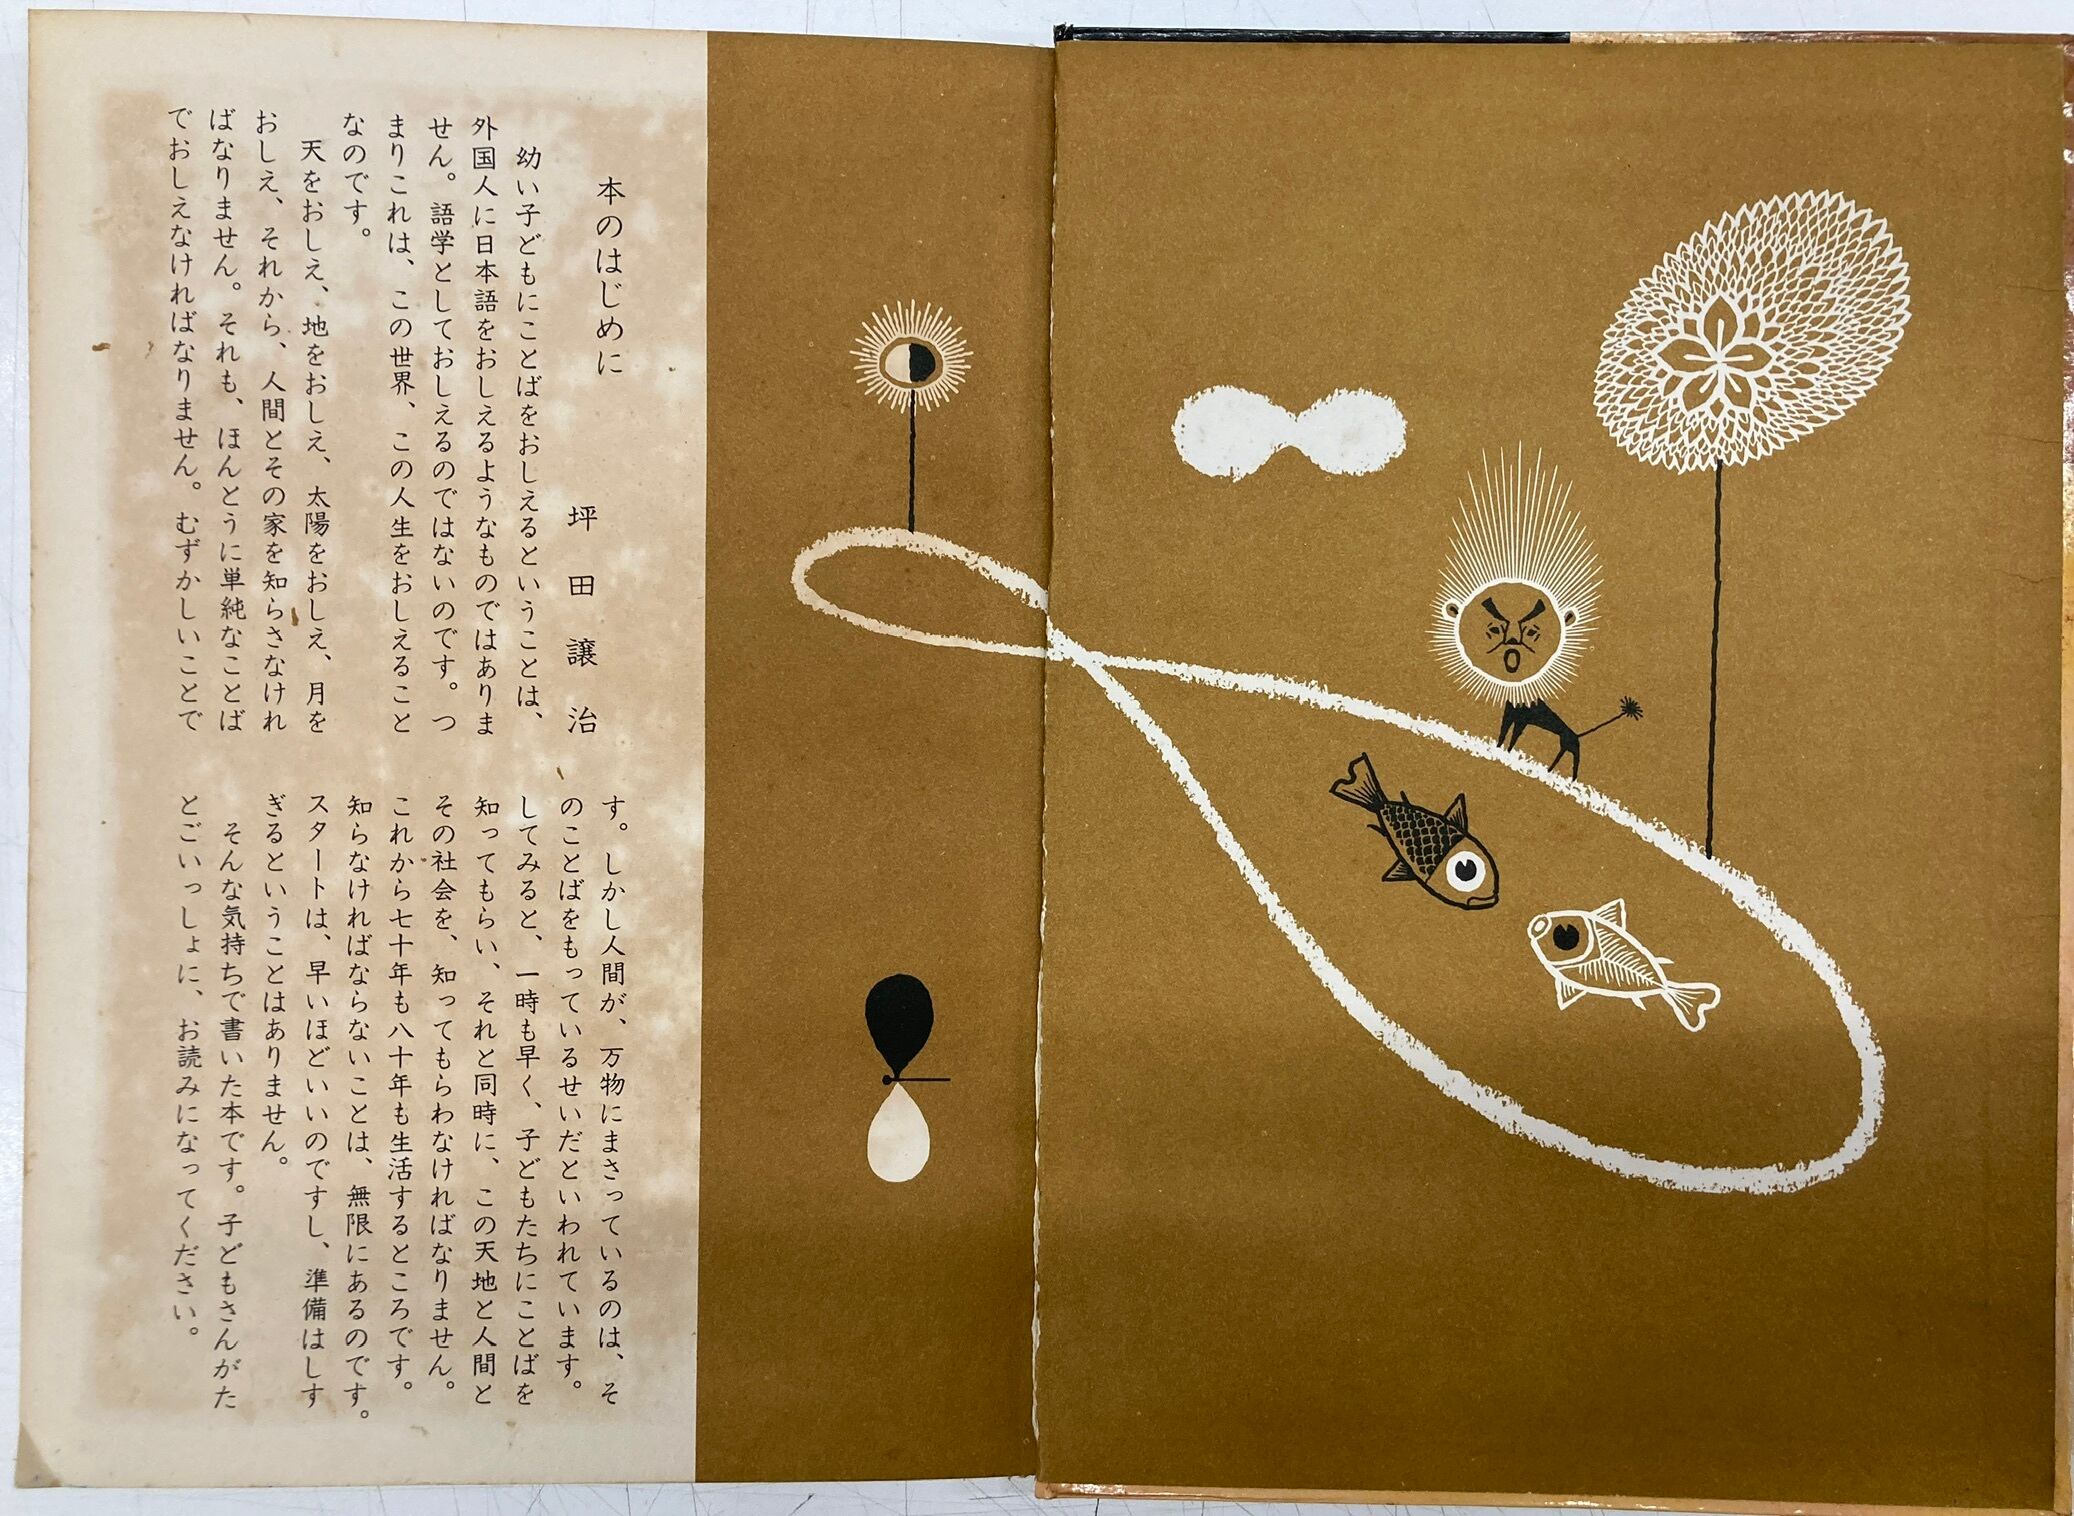 本のはじめに
坪田譲治
幼い子どもにことばをおしえるということは、
外国人に日本語をおしえるようなものではありま
せん。語学としておしえるのではないのです。つ
まりこれは、この世界、この人生をおしえること
なのです。
天をおしえ、地をおしえ、太陽をおしえ、月を
おしえ、それから、人間とその家を知らさなけれ
ばなりません。それも、ほんとうに単純なことば
でおしえなければなりません。むずかしいことで
す。しかし人間が、万物にまさっているのは、そ
のことばをもっているせいだといわれています。
してみると、一時も早く、子どもたちにことばを
知ってもらい、それと同時に、この天地と人間と
その社会を、知ってもらわなければなりません。
これから七十年も八十年も生活するところです。
知らなければならないことは、無限にあるのです。
スタートは、早いほどいいのですし、準備はしす
ぎるということはありません。
そんな気持ちで書いた本です。子どもさんがた
とごいっしょに、お読みになってください。